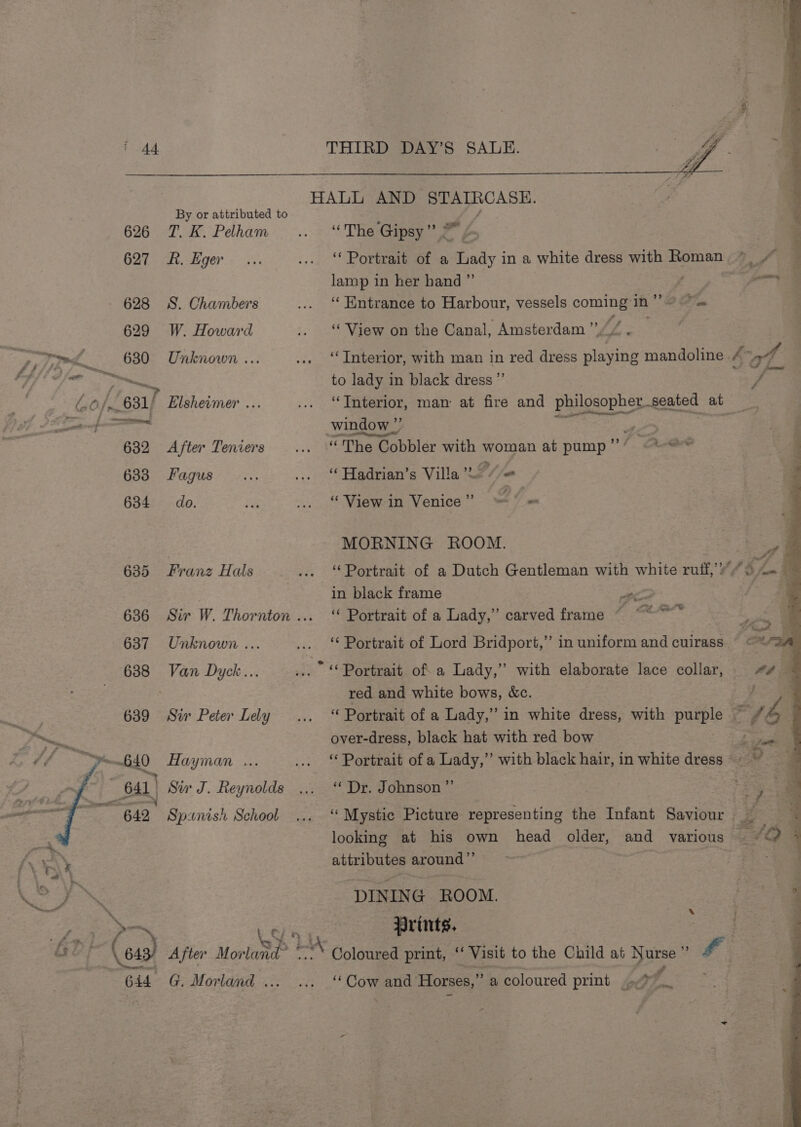 44 THIRD DAY'S SALE.
HALL AND STAIRCASE.
By or attributed to
626 T. K. Pelham .. “The Gipsy”
627 R. Eger ... ... “Portrait of a Lady in a white dress with Roman
lamp in her hand”
628 S. Chambers ... “Entrance to Harbour, vessels coming in”
629 W. Howard .. “View on the Canal, Amsterdam”
630 Unknown ... ... “Interior, with man in red dress playing mandoline
to lady in black dress”
631 Elsheimer ... ... “Interior, man at fire and philosopher seated at
window”
632 After Teniers ... “The Cobbler with woman at pump”
633 Fagus ... ... “Hadrian's Villa”
634 do. ... ... “View in Venice”
MORNING ROOM.
635 Franz Hals ... “Portrait of a Dutch Gentleman with white ruff,”
in black frame
636 Sir W. Thornton ... “Portrait of a Lady,” carved frame
637 Unknown ... ... “Portrait of Lord Bridport,” in uniform and cuirass
638 Van Dyck... ... “Portrait of a Lady,” with elaborate lace collar,
red and white bows, &c.
639 Sir Peter Lely ... “Portrait of a Lady,” in white dress, with purple
over-dress, black hat with red bow
640 Hayman ... ... “Portrait of a Lady,” with black hair, in white dress
641 Sir J. Reynolds ... “Dr. Johnson”
642 Spanish School ... “Mystic Picture representing the Infant Saviour
looking at his own head older, and various
attributes around”
DINING ROOM.
Prints.
643 After Morland ... Coloured print, “Visit to the Child at Nurse”
644 G. Morland ... ... “Cow and Horses,” a coloured print